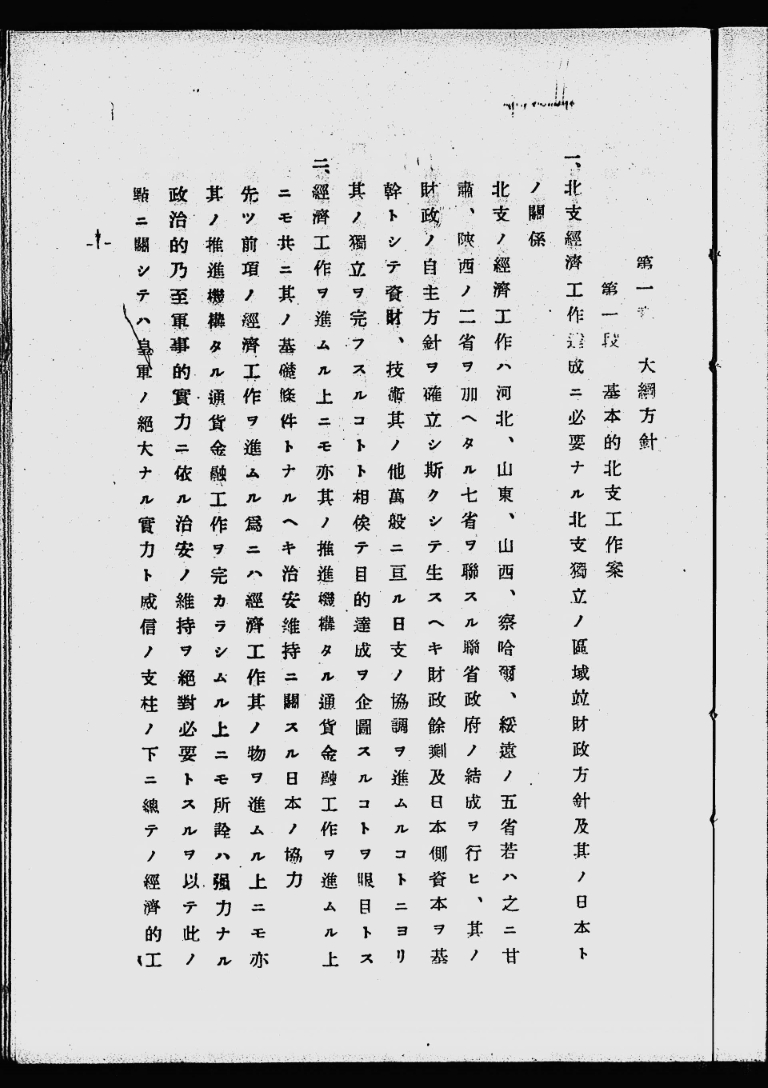 第一章　大綱方針
第一段　基本的北支工作案
一、北支經濟工作達成ニ必要ナル北支獨立ノ區域竝財政方針及其ノ日本ト
ノ關係
北支ノ經濟工作ハ河北、山東、山西、察哈爾、綏遠ノ五省若ハ之ニ甘
肅、陝西ノ二省ヲ加ヘタル七省ヲ聯スル聯省政府ノ結成ヲ行ヒ、其ノ
財政ノ自主方針ヲ確立シ斯クシテ生スヘキ財政餘剩及日本側資本ヲ基
幹トシテ資財、技術其ノ他萬般ニ亘ル日支ノ協調ヲ進ムルコトニヨリ
其ノ獨立ヲ完フスルコトト相俟テ目的達成ヲ企圖スルコトヲ眼目トス
二、經濟工作ヲ進ムル上ニモ亦其ノ推進機構タル通貨金融工作ヲ進ムル上
ニモ共ニ其ノ基礎條件トナルヘキ治安維持ニ關スル日本ノ協力
先ツ前項ノ經濟工作ヲ進ムル爲ニハ經濟工作其ノ物ヲ進ムル上ニモ亦
其ノ推進機構タル通貨金融工作ヲ完カラシムル上ニモ所詮ハ强力ナル
政治的乃至軍事的實力ニ依ル治安ノ維持ヲ絕對必要トスルヲ以テ此ノ
點ニ關シテハ皇軍ノ絕大ナル實力ト威信ノ支柱ノ下ニ總テノ經濟的工